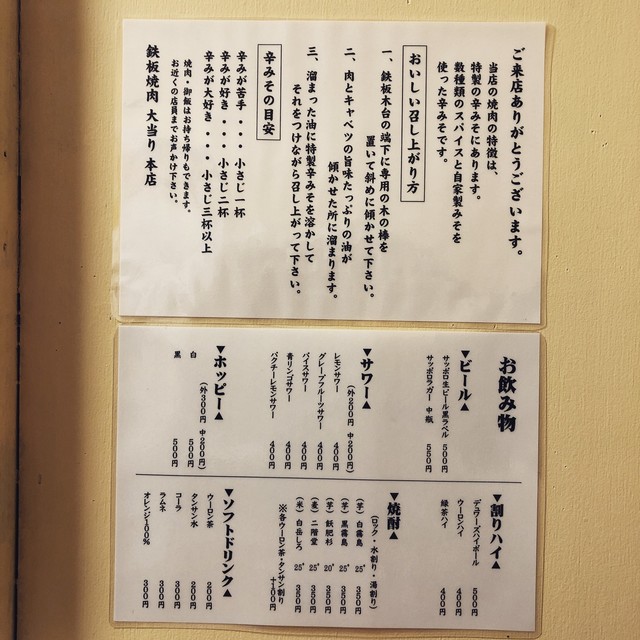 ご来店ありがとうございます。
当店の焼肉の特徴は、
特製の辛みそにあります。
数種類のスパイスと自家製みそを
使った辛みそです。
おいしい召し上がり方
一、鉄板木台の端下に専用の木の棒を
置いて斜めに傾かせて下さい。
二、肉とキャベツの旨味たっぷりの油が
傾かせた所に溜まります。
三、溜まった油に特製辛みそを溶かして
それをつけながら召し上がって下さい。
辛みその目安
辛みが苦手・・・小さじ一杯
辛みが好き・・・小さじ二杯
辛みが大好き・・・小さじ三杯以上
焼肉・御飯はお持ち帰りもできます。
お近くの店員までお声かけ下さい。
鉄板焼肉 大当り 本店
お飲み物
▼ビール▲
サッポロ生ビール黒ラベル 500円
サッポロラガー 中瓶 550円
▼サワー▲
(外200円 中200円)
レモンサワー 400円
グレープフルーツサワー 400円
バイスサワー 400円
青リンゴサワー 400円
パクチーレモンサワー 400円
▼ホッピー▲
(外300円 中200円)
白 500円
黒 500円
▼割りハイ▲
デュワーズハイボール 500円
ウーロンハイ 400円
緑茶ハイ 400円
▼焼酎▲
(ロック・水割り・湯割り)
(芋) 白霧島 25° 350円
(芋) 黒霧島 25° 350円
(芋) 飫肥杉 20° 350円
(麦) 二階堂 25° 350円
(米) 白岳しろ 25° 350円
※各ウーロン茶・タンサン割り
+100円
▼ソフトドリンク▲
ウーロン茶 200円
タンサン水 200円
コーラ 300円
ラムネ 300円
オレンジ100% 300円